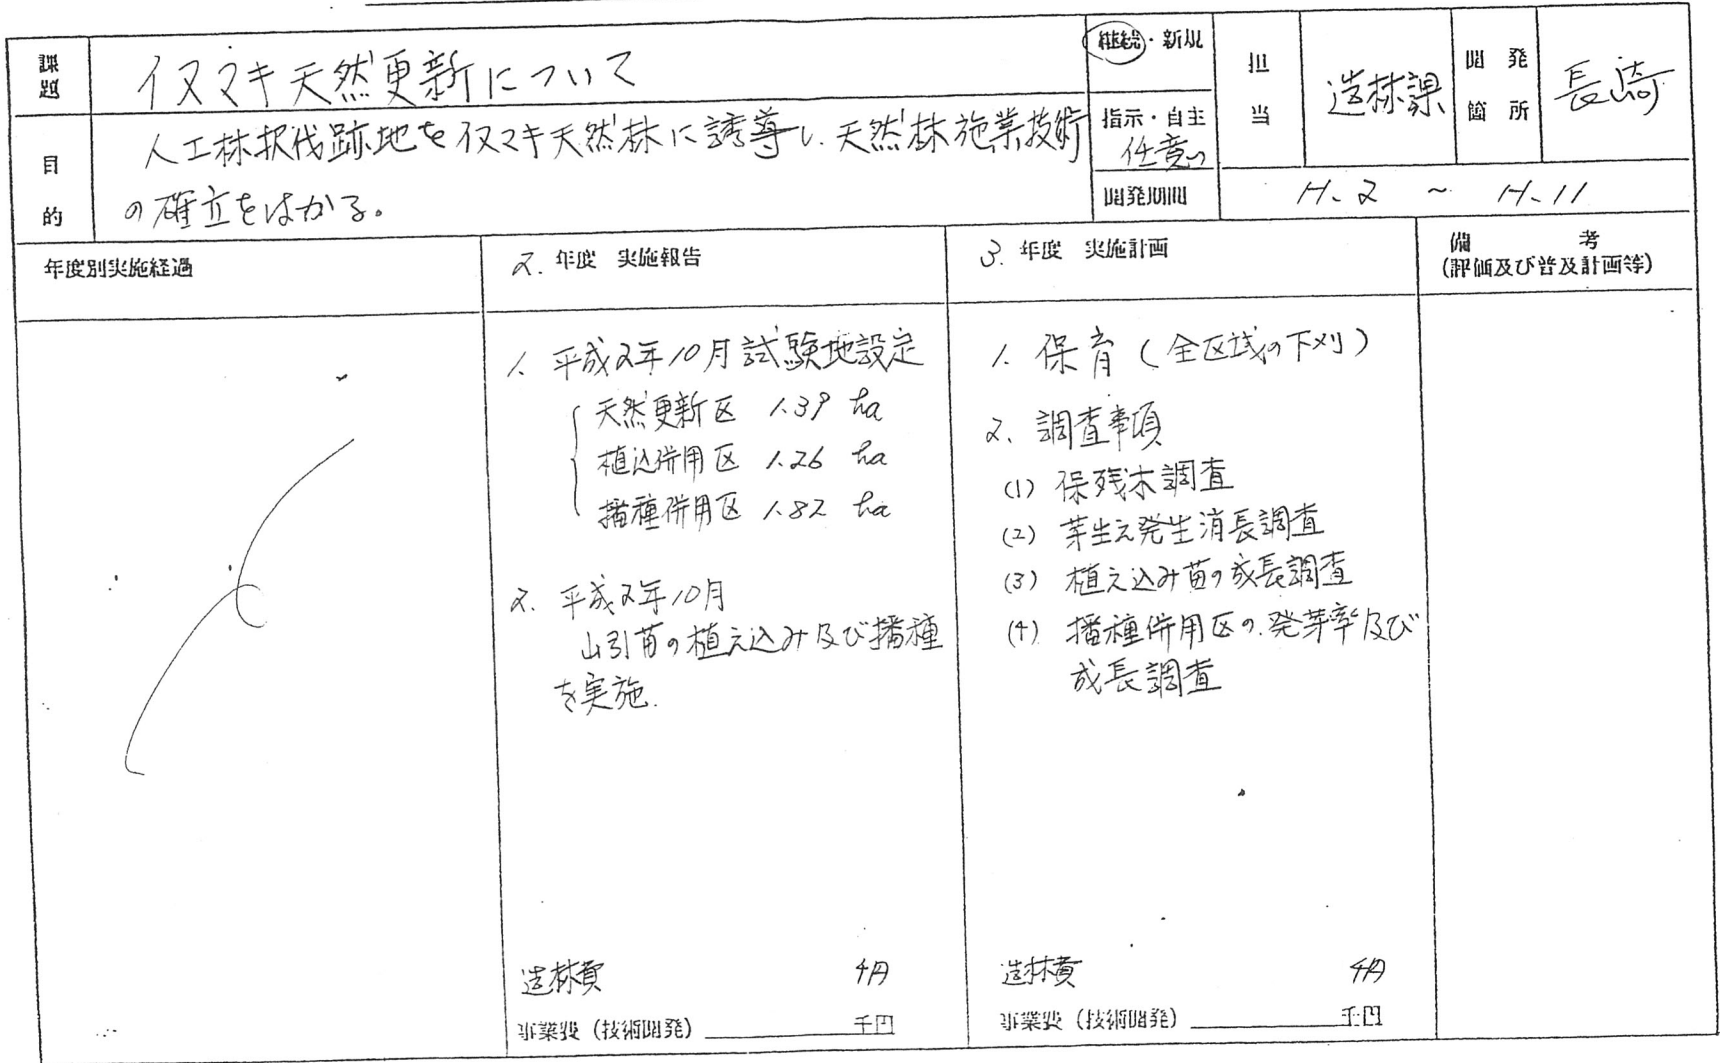 課題
イヌマキ天然更新について
継続・新規
担当
造林課
開発箇所
長崎
目的
人工林択伐跡地をイヌマキ天然林に誘導し、天然林施業技術
の確立をはかる。
指示・自主
任意
開発期間
H.2 ~ H.11
年度別実施経過
2. 年度 実施報告
3. 年度 実施計画
備考
(評価及び普及計画等)
1. 平成2年10月試験地設定
天然更新区 1.39 ha
植込併用区 1.26 ha
播種併用区 1.82 ha
2. 平成2年10月
山引苗の植え込み及び播種
を実施.
造林費 千円
事業費(技術開発) 千円
1. 保育(全区域の下刈)
2. 調査事項
(1) 保残木調査
(2) 芽生え発生消長調査
(3) 植え込み苗の成長調査
(4) 播種併用区の発芽率及び
成長調査
造林費 千円
事業費(技術開発) 千円